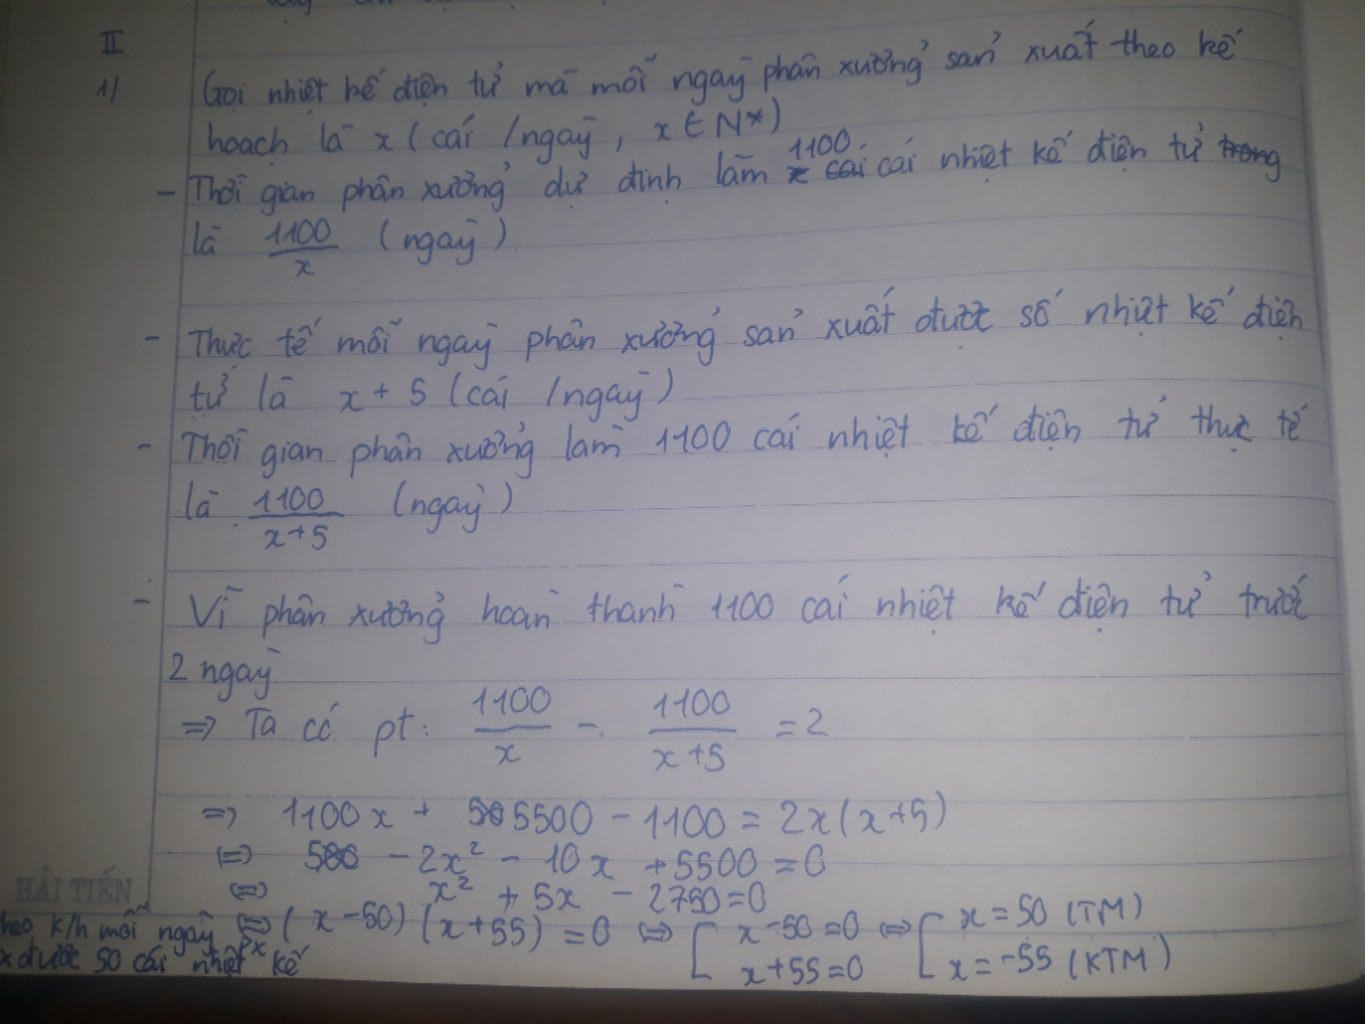 II
1) Gọi nhiệt kế điện tử mà mỗi ngày phân xưởng sản xuất theo kế
hoạch là x (cái /ngày, x ∈ N*)
1100
- Thời gian phân xưởng dự định làm x cái cái nhiệt kế điện tử trong
là 1100/x (ngày)
- Thực tế mỗi ngày phân xưởng sản xuất được số nhiệt kế điện
tử là x + 5 (cái /ngày)
- Thời gian phân xưởng làm 1100 cái nhiệt kế điện tử thực tế
là 1100/(x+5) (ngày)
- Vì phân xưởng hoàn thành 1100 cái nhiệt kế điện tử trước
2 ngày
=> Ta có pt: 1100/x - 1100/(x+5) = 2
=> 1100x + 5500 - 1100 = 2x(x+5)
(=) -2x² - 10x + 5500 = 0
(=) x² + 5x - 2750 = 0
(=) (x-50)(x+55) = 0 <=> [ x-50=0 <=> [ x = 50 (TM)
x+55=0 x = -55 (KTM)
HẢI TIẾN
theo k/h mỗi ngày
x được 50 cái nhiệt kế